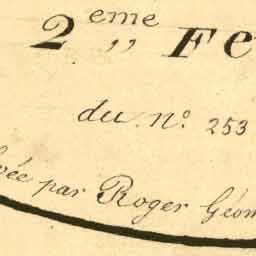 2eme Fe
du n.o 253
vée par Roger Géom